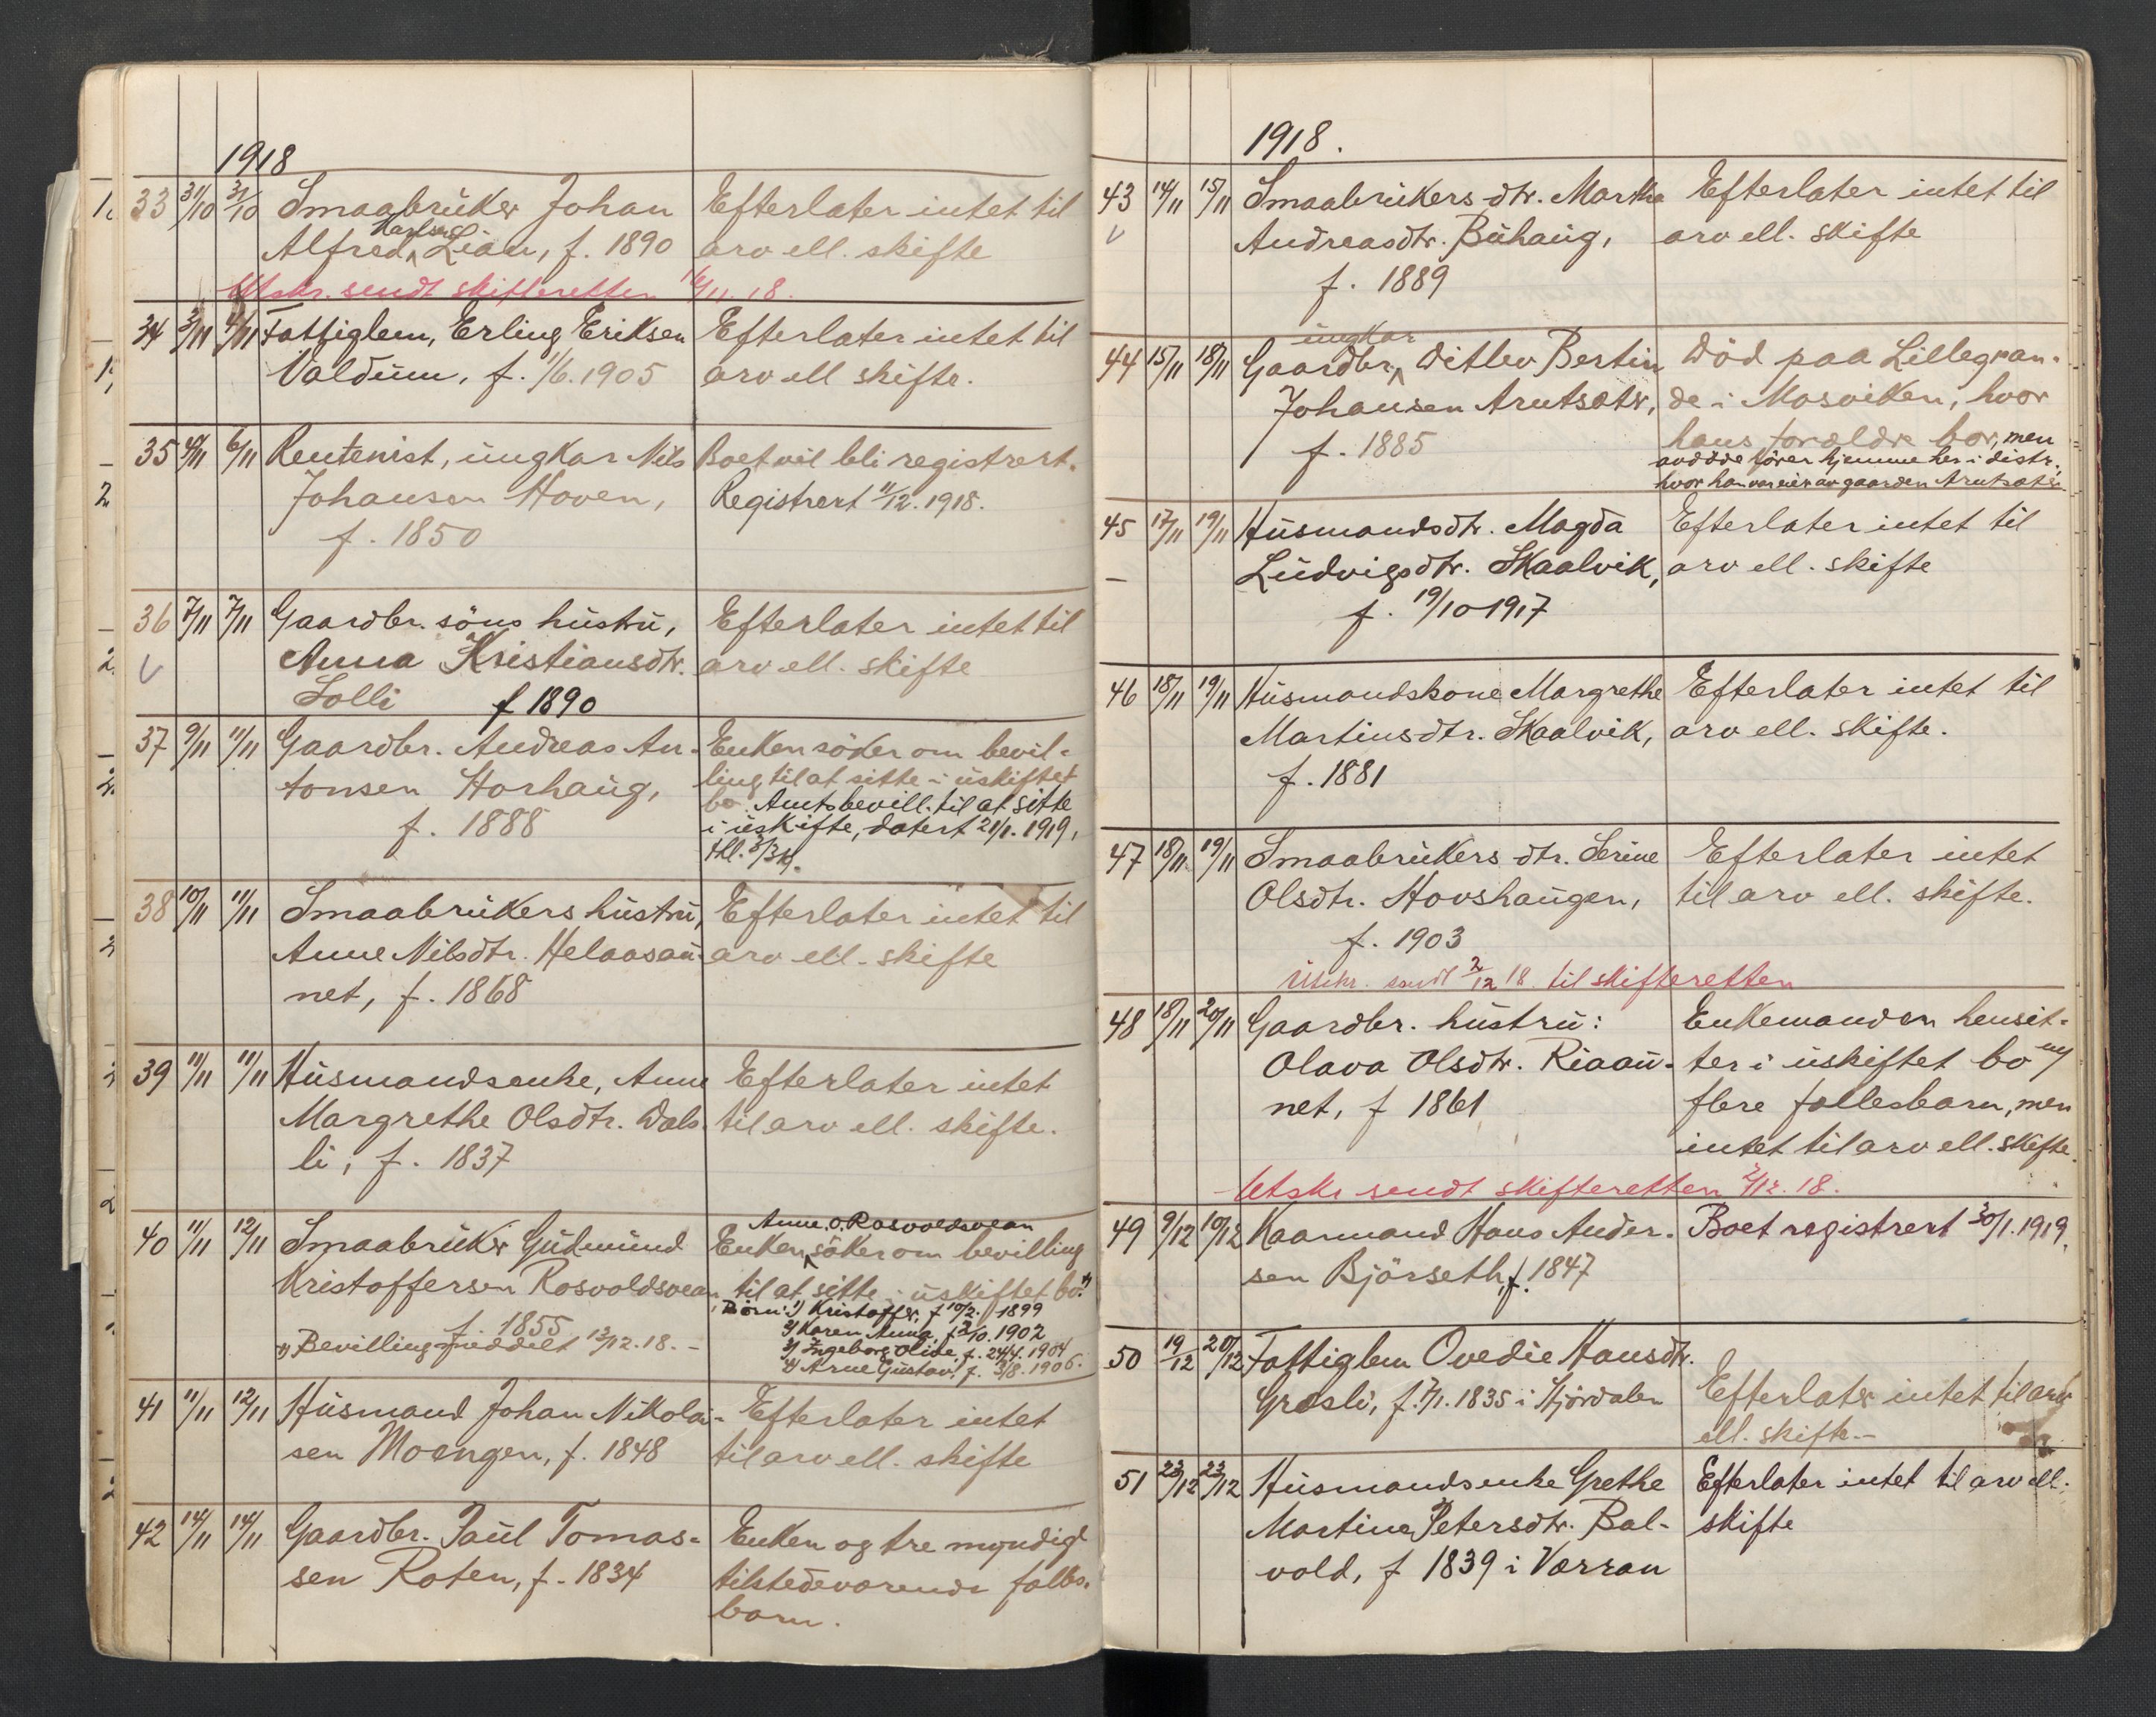 1918
33 31/10 31/10 Smaabruker Johan Efterlater intet til
Karlsen
Alfred ^ Lian, f. 1890 arv ell. skifte
Utskr. sendt skifteretten 16/11. 18.
34 3/11 4/11 Fattiglem, Erling Eriksen Efterlater intet til
Valdum, f. 1/6. 1905 arv ell skifte.
35 4/11 6/11 Rentenist, ungkar Nils Boet vil bli registrert.
Johansen Hoven, Registrert 11/12. 1918.
f. 1850
36 7/11 7/11 Gaardbr. söns hustru, Efterlater intet til
Anna Kristiansdtr. arv ell. skifte
Lolli f 1890
37 9/11 11/11 Gaardbr. Andreas An- Enken söker om bevil-
tonsen Horhaug, ling til at sitte i uskiftet
bo. Amtsbevill. til at sitte
f. 1888 i uskifte, datert 21/1. 1919,
38 10/11 11/11 Smaabrukers hustru, Efterlater intet til
Anne Nilsdtr. Helaasau- arv ell. skifte
net, f. 1868
39 11/11 11/11 Husmandsenke, Anne Efterlater intet
Margrethe Olsdtr. Dals- til arv ell. skifte.
li, f. 1837
Anne O. Rosvoldsvean
40 11/11 12/11 Smaabruker Gudmund Enken ^ söker om bevilling
Kristoffersen Rosvoldsvean til at sitte i uskiftet bo. x)
f. 1855 Börn: 1) Kristoffer, f 10/2. 1899
2) Karen Anna, f 2/10. 1902
x) Bevilling meddelt 13/12. 18. – 3) Ingeborg Olide, f. 24/4. 1904
4) Arne Gustav, f. 3/8. 1906.
41 11/11 12/11 Husmand Johan Nikolai- Efterlater intet
sen Moengen, f. 1848 til arv ell. skifte
42 14/11 14/11 Gaardbr. Paul Tomas- Enken og tre myndige
sen Roten, f. 1834 tilstedeværende fælles-
barn.
1918.
43 14/11 15/11 Smaabrukers dtr. Martha Efterlater intet til
Andreasdtr. Buhaug, arv ell. skifte
f. 1889
ungkar
44 15/11 18/11 Gaardbr. ^ Ditlev Bertin Död paa Lillegran-
Johansen Arutsæter, de i Mosviken, hvor
f. 1885 hans forældre bor, men
avdöde hörer hjemme her i distr.,
hvor han var eier av gaarden Arutsæter.
45 17/11 19/11 Husmandsdtr. Magda Efterlater intet til
Ludvigsdtr. Skaalvik, arv ell. skifte
f. 19/10 1917
46 18/11 19/11 Husmandskone Margrethe Efterlater intet til
Martinsdtr. Skaalvik, arv ell. skifte.
f. 1881
47 18/11 19/11 Smaabrukers dtr. Serine Efterlater intet
Olsdtr. Hovshaugen, til arv ell. skifte.
f. 1903
Utskr. sendt 2/12 18. til skifteretten
48 18/11 20/11 Gaardbr. hustru: Enkemanden hensit-
Olava Olsdtr. Riaau- ter i uskiftet bo m/
net, f 1861 flere fællesbarn, men
intet til arv ell. skifte.
Utskr sendt skifteretten 2/12. 18.
49 9/12 10/12 Kaarmand Hans Ander- Boet registrert 30/1. 1919.
sen Björseth, f. 1847
50 19/12 20/12 Fattiglem Ovedie Hansdtr.
Græsli, f. 7/1. 1835 i Stjördalen Efterlater intet til arv
ell. skifte.–
51 23/12 23/12 Husmandsenke Grethe Efterlater intet til arv ell.
Martina Petersdtr. Bal- skifte
vold, f 1839 i Værran